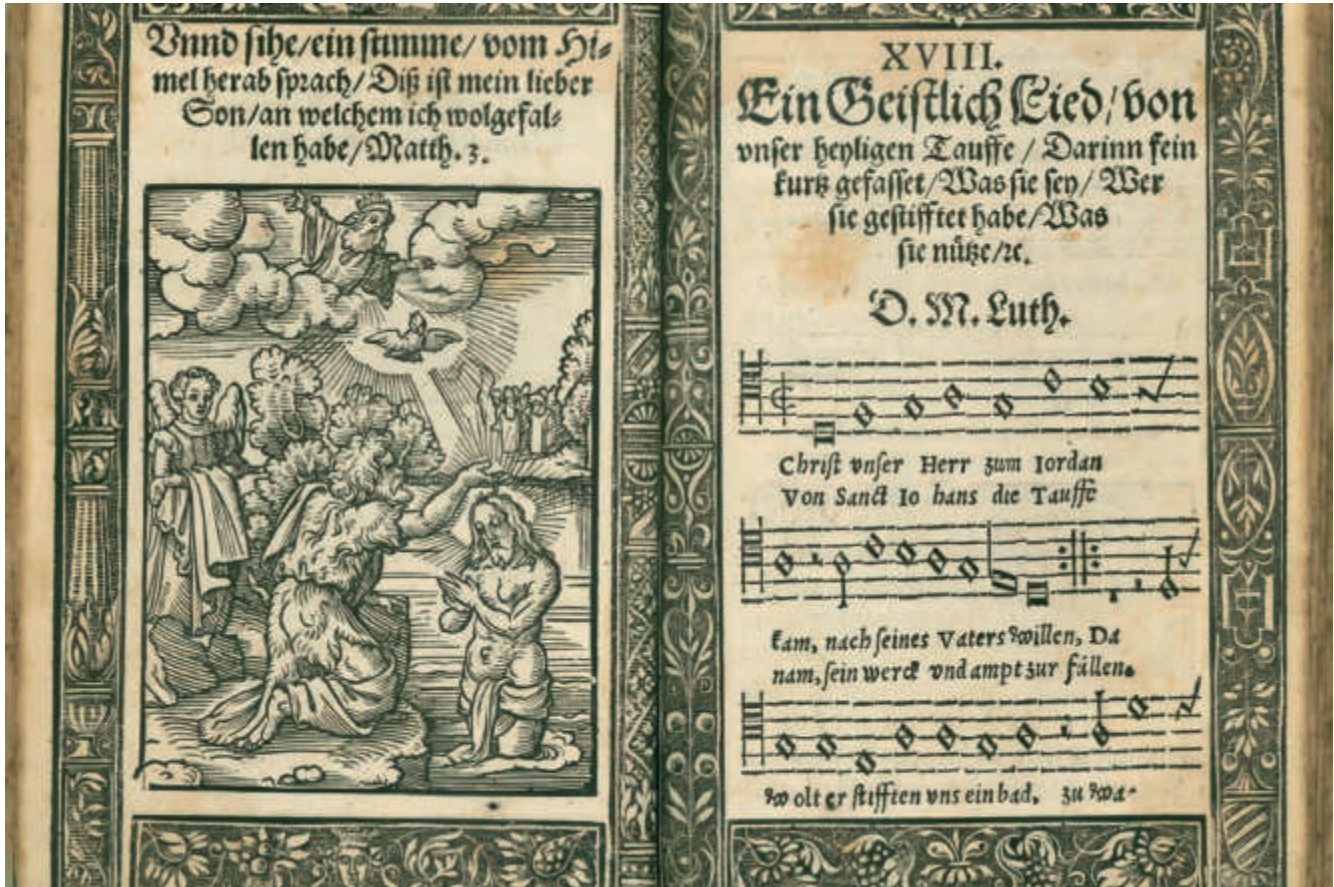 Vnnd sihe/ein stimme/ vom Hi⸗
mel herab sprach/Diß ist mein lieber
Son/an welchem ich wolgefal⸗
len habe/Matth. 3.
XVIII.
Ein Geistlich Lied/von
vnser heyligen Tauffe / Darinn fein
kurtz gefasset/Was sie sey/ Wer
sie gestifftet habe/Was
sie nůtze/ꝛc.
D. M. Luth.
Christ vnser Herr zum Iordan
Von Sanct Io hans die Tauffe
kam, nach seines Vaters willen, Da
nam, sein werck vnd ampt zur füllen.
Wolt er stifften vns ein bad, zu wa-